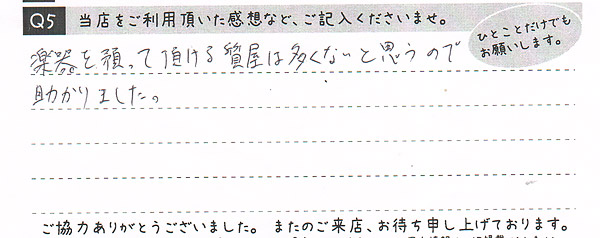 Q5 当店をご利用頂いた感想など、ご記入くださいませ。
ひとことだけでも
お願いします。
楽器を預って頂ける質屋は多くないと思うので
助かりました。
ご協力ありがとうございました。またのご来店、お待ち申し上げております。